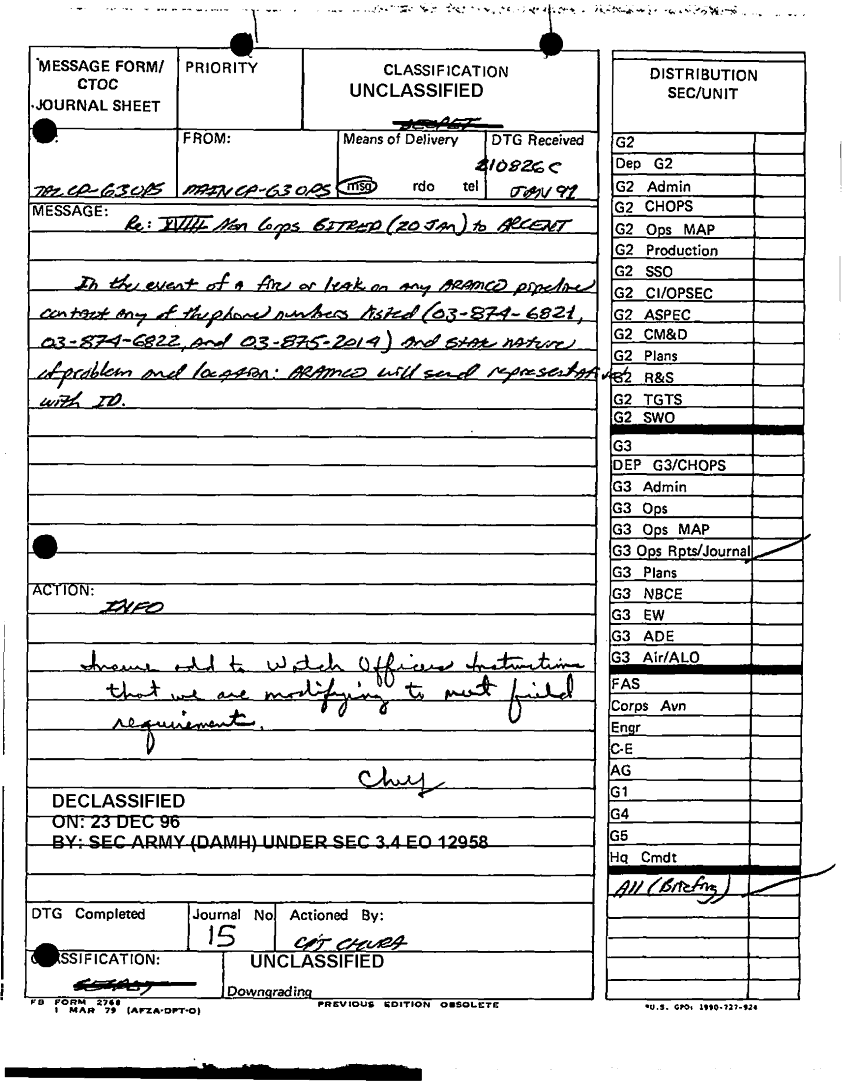 MESSAGE FORM/
CTOC
JOURNAL SHEET
PRIORITY
CLASSIFICATION
UNCLASSIFIED
SECRET
FROM:
Means of Delivery
DTG Received
TAC CP-G3 OPS
MAIN CP-G3 OPS
msg rdo tel
210826C
JAN 91
MESSAGE:
Re: XVIII Abn Corps SITREP (20 JAN) to ARCENT
In the event of a fire or leak on any ARAMCO pipeline
contact any of the phone numbers listed (03-874-6821,
03-874-6822, and 03-875-2014) and state nature
of problem and location: ARAMCO will send representatives
with ID.
ACTION:
INFO
Insure add to Watch Officers Instructions
that we are modifying to meet field
requirements.
DECLASSIFIED
ON: 23 DEC 96
BY: SEC ARMY (DAMH) UNDER SEC 3.4 EO 12958
DTG Completed
Journal No
15
Actioned By:
CPT CHURA
SSIFICATION:
SECRET
UNCLASSIFIED
Downgrading
FB FORM 2768
1 MAR 79 (AFZA-DPT-O)
PREVIOUS EDITION OBSOLETE
DISTRIBUTION
SEC/UNIT
G2
Dep G2
G2 Admin
G2 CHOPS
G2 Ops MAP
G2 Production
G2 SSO
G2 CI/OPSEC
G2 ASPEC
G2 CM&D
G2 Plans
G2 R&S
G2 TGTS
G2 SWO
G3
DEP G3/CHOPS
G3 Admin
G3 Ops
G3 Ops MAP
G3 Ops Rpts/Journal
G3 Plans
G3 NBCE
G3 EW
G3 ADE
G3 Air/ALO
FAS
Corps Avn
Engr
C-E
AG
G1
G4
G5
Hq Cmdt
All (Briefing)
*U.S. GPO: 1990-727-924